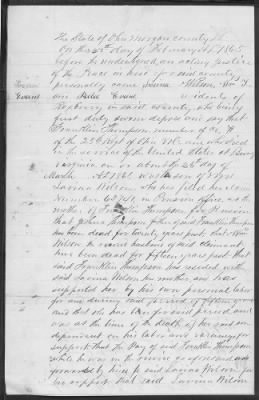 The State of Ohio Morgan county SS
On this day of February AD 1865
before the undersigned, an acting Justice
of the Peace in and for said county
personally came Wilson, Wm
and Evans residents of
Roxberry in said county, who being
first duly sworn depose and say that
Franklin Thompson member of Co. H
of the 25th Regt of Ohio Vol. Inf. who died
in the service of the United States at
Virginia on or about the 25th day of
March AD 1862 was son of Mrs
Lavina Wilson, who has filed her claim
Number in Pension office, as the
mother of Franklin Thompson for Pension
that Thompson father of said Franklin Thompson
has been dead for twenty years past, that Wm
Wilson, the second husband of said claimant,
have been dead for fifteen years past that
said Franklin Thompson has resided with
said Lavina Wilson, his mother, and has
supported her by his own personal labor
for and during said period of fifteen years
and that she has been for said period and
was at the time of the death of her said son
dependent on his labor and earnings for
support. That the Pay of said Franklin Thompson
while he was in the service as aforesaid was
forwarded by him to said Lavina Wilson for
her support that said Lavina Wilson